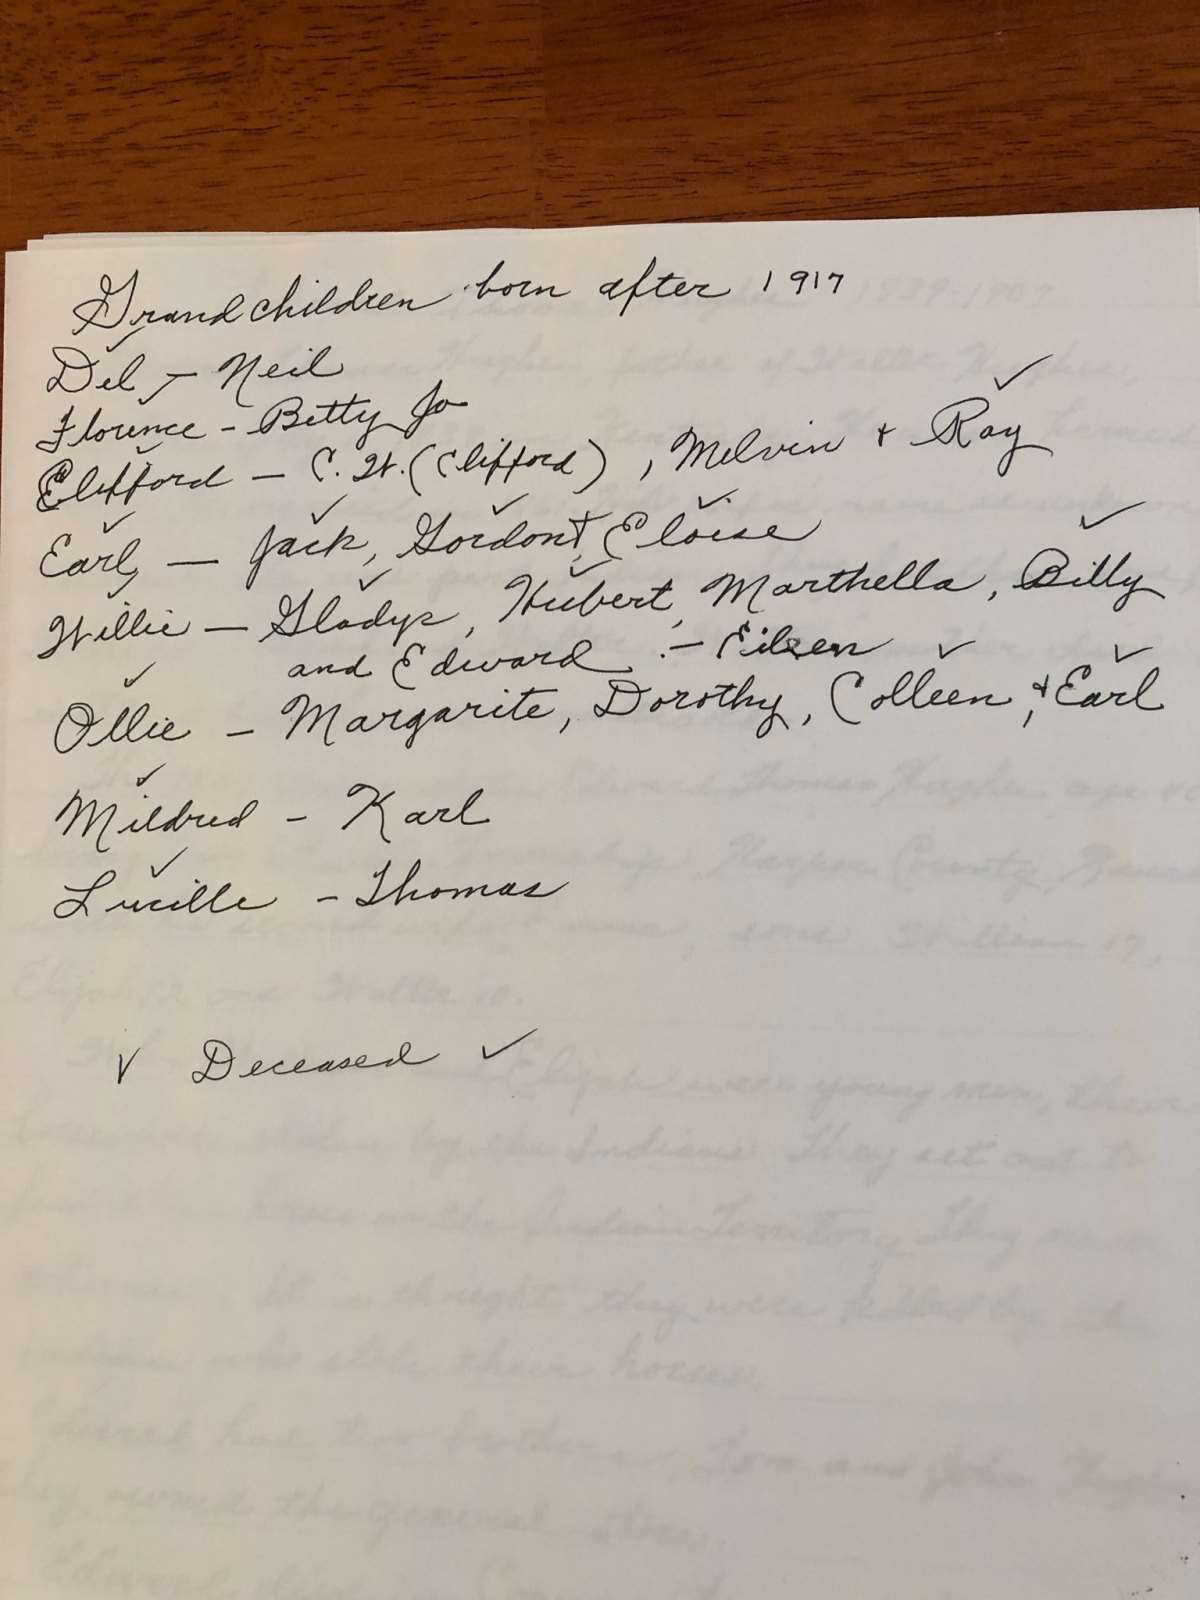 Grandchildren born after 1917
Del, - Neil
Florence - Betty Jo
Clifford - C. W. (Clifford), Melvin + Ray ✓
Earl, - Jack, Gordon + Eloise
Willie - Gladys, Hubert, Marthella, Billy
and Edward - Eileen
Ollie - Margarite, Dorothy, Colleen, + Earl
Mildred - Karl
Lucille - Thomas
✓ Deceased ✓